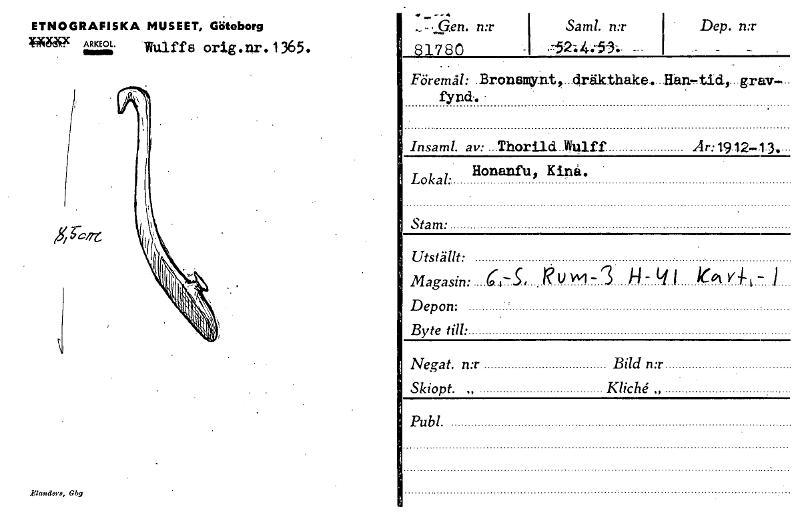 ETNOGRAFISKA MUSEET, Göteborg
ARKEOL. Wulffs orig.nr.1365.
8,5cm
Elanders, Gbg
Gen. n:r Saml. n:r Dep. n:r
81780 52.4.53.
Föremål: Bronsmynt, dräkthake. Han-tid, grav-
fynd.
Insaml. av: Thorild Wulff År: 1912-13.
Lokal: Honanfu, Kina.
Stam:
Utställt:
Magasin: 6.-S. Rum-3 H-41 Kart.-1
Depon:
Byte till:
Negat. n:r Bild n:r
Skiopt. „ Kliché „
Publ.